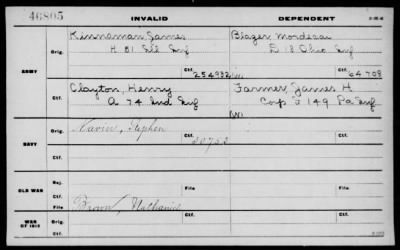 46805
INVALID DEPENDENT
Orig. Kinnaman, James Blazer, Mordecai
H 81 Ill Inf D 18 Ohio Inf
ARMY Ctf. 254932 Ctf. 64708
Clayton, Henry Farmer, James H.
Ctf. A 74 Ind Inf Corp I 149 Pa Inf
(W)
Orig. Navin, Stephen
NAVY Ctf. Ctf.
Ctf. 30753
Rej.
OLD WAR Ctf. File Ctf. File
Brown, Nathaniel
WAR OF 1812 Orig. Ctf. Orig. Ctf.